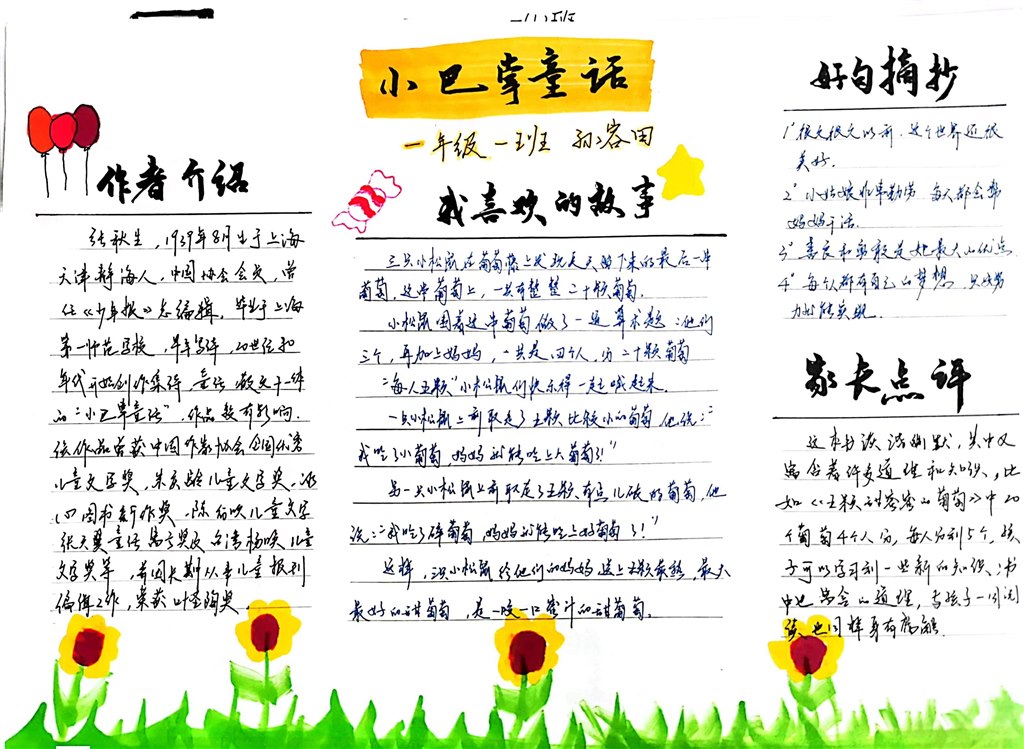 小巴掌童话
一年级一班 孙容田
作者介绍
张秋生，1939年8月生于上海
天津静海人，中国协会会员，曾
任《少年报》总编辑，毕业于上海
第一师范学校，早年写诗，20世纪80
年代开始创作集诗、童话、散文于一体
的“小巴掌童话”，作品较有影响。
该作品曾获中国作家协会全国优秀
儿童文学奖，宋庆龄儿童文学奖，冰
心图书新作奖，陈伯吹儿童文学
张天翼童话 及台湾杨唤儿童
文学奖等，曾因长期从事儿童报刊
编辑工作，荣获叶圣陶奖。
我喜欢的故事
三只小松鼠在葡萄藤上发现冬天留下来的最后一串
葡萄，这串葡萄上，一共有整整二十颗葡萄。
小松鼠围着这串葡萄做了一道算术题：他们
三个，再加上妈妈，一共是四个人，分二十颗葡萄
“每人五颗”小松鼠们快乐得一起喊起来。
一只小松鼠上前取走了五颗比较小的葡萄 他说：“
我吃了小葡萄，妈妈就能吃上大葡萄了！”
另一只小松鼠上前取走了五颗有点儿破的葡萄，他
说：“我吃了碎葡萄 妈妈就能吃上好葡萄了！”
这样，三只小松鼠给他们的妈妈送上五颗最熟，最大
最好的甜葡萄，是一咬一口蜜汁的甜葡萄。
好句摘抄
1” 很久很久以前，这个世界还很
美好。
2” 小姑娘非常勤劳 每天都会帮
妈妈干活。
3” 善良和勇敢是她最大的优点
4” 每个人都有自己的梦想，只有努
力才能实现。
家长点评
这本书诙谐幽默，其中又
富含着许多道理和知识，比
如《五颗甜蜜蜜的葡萄》中20
个葡萄4个人分，每人分到5个，孩
子可以学习到一些新的知识，书
中也富含的道理，与孩子一同阅
读也同样身有感触。